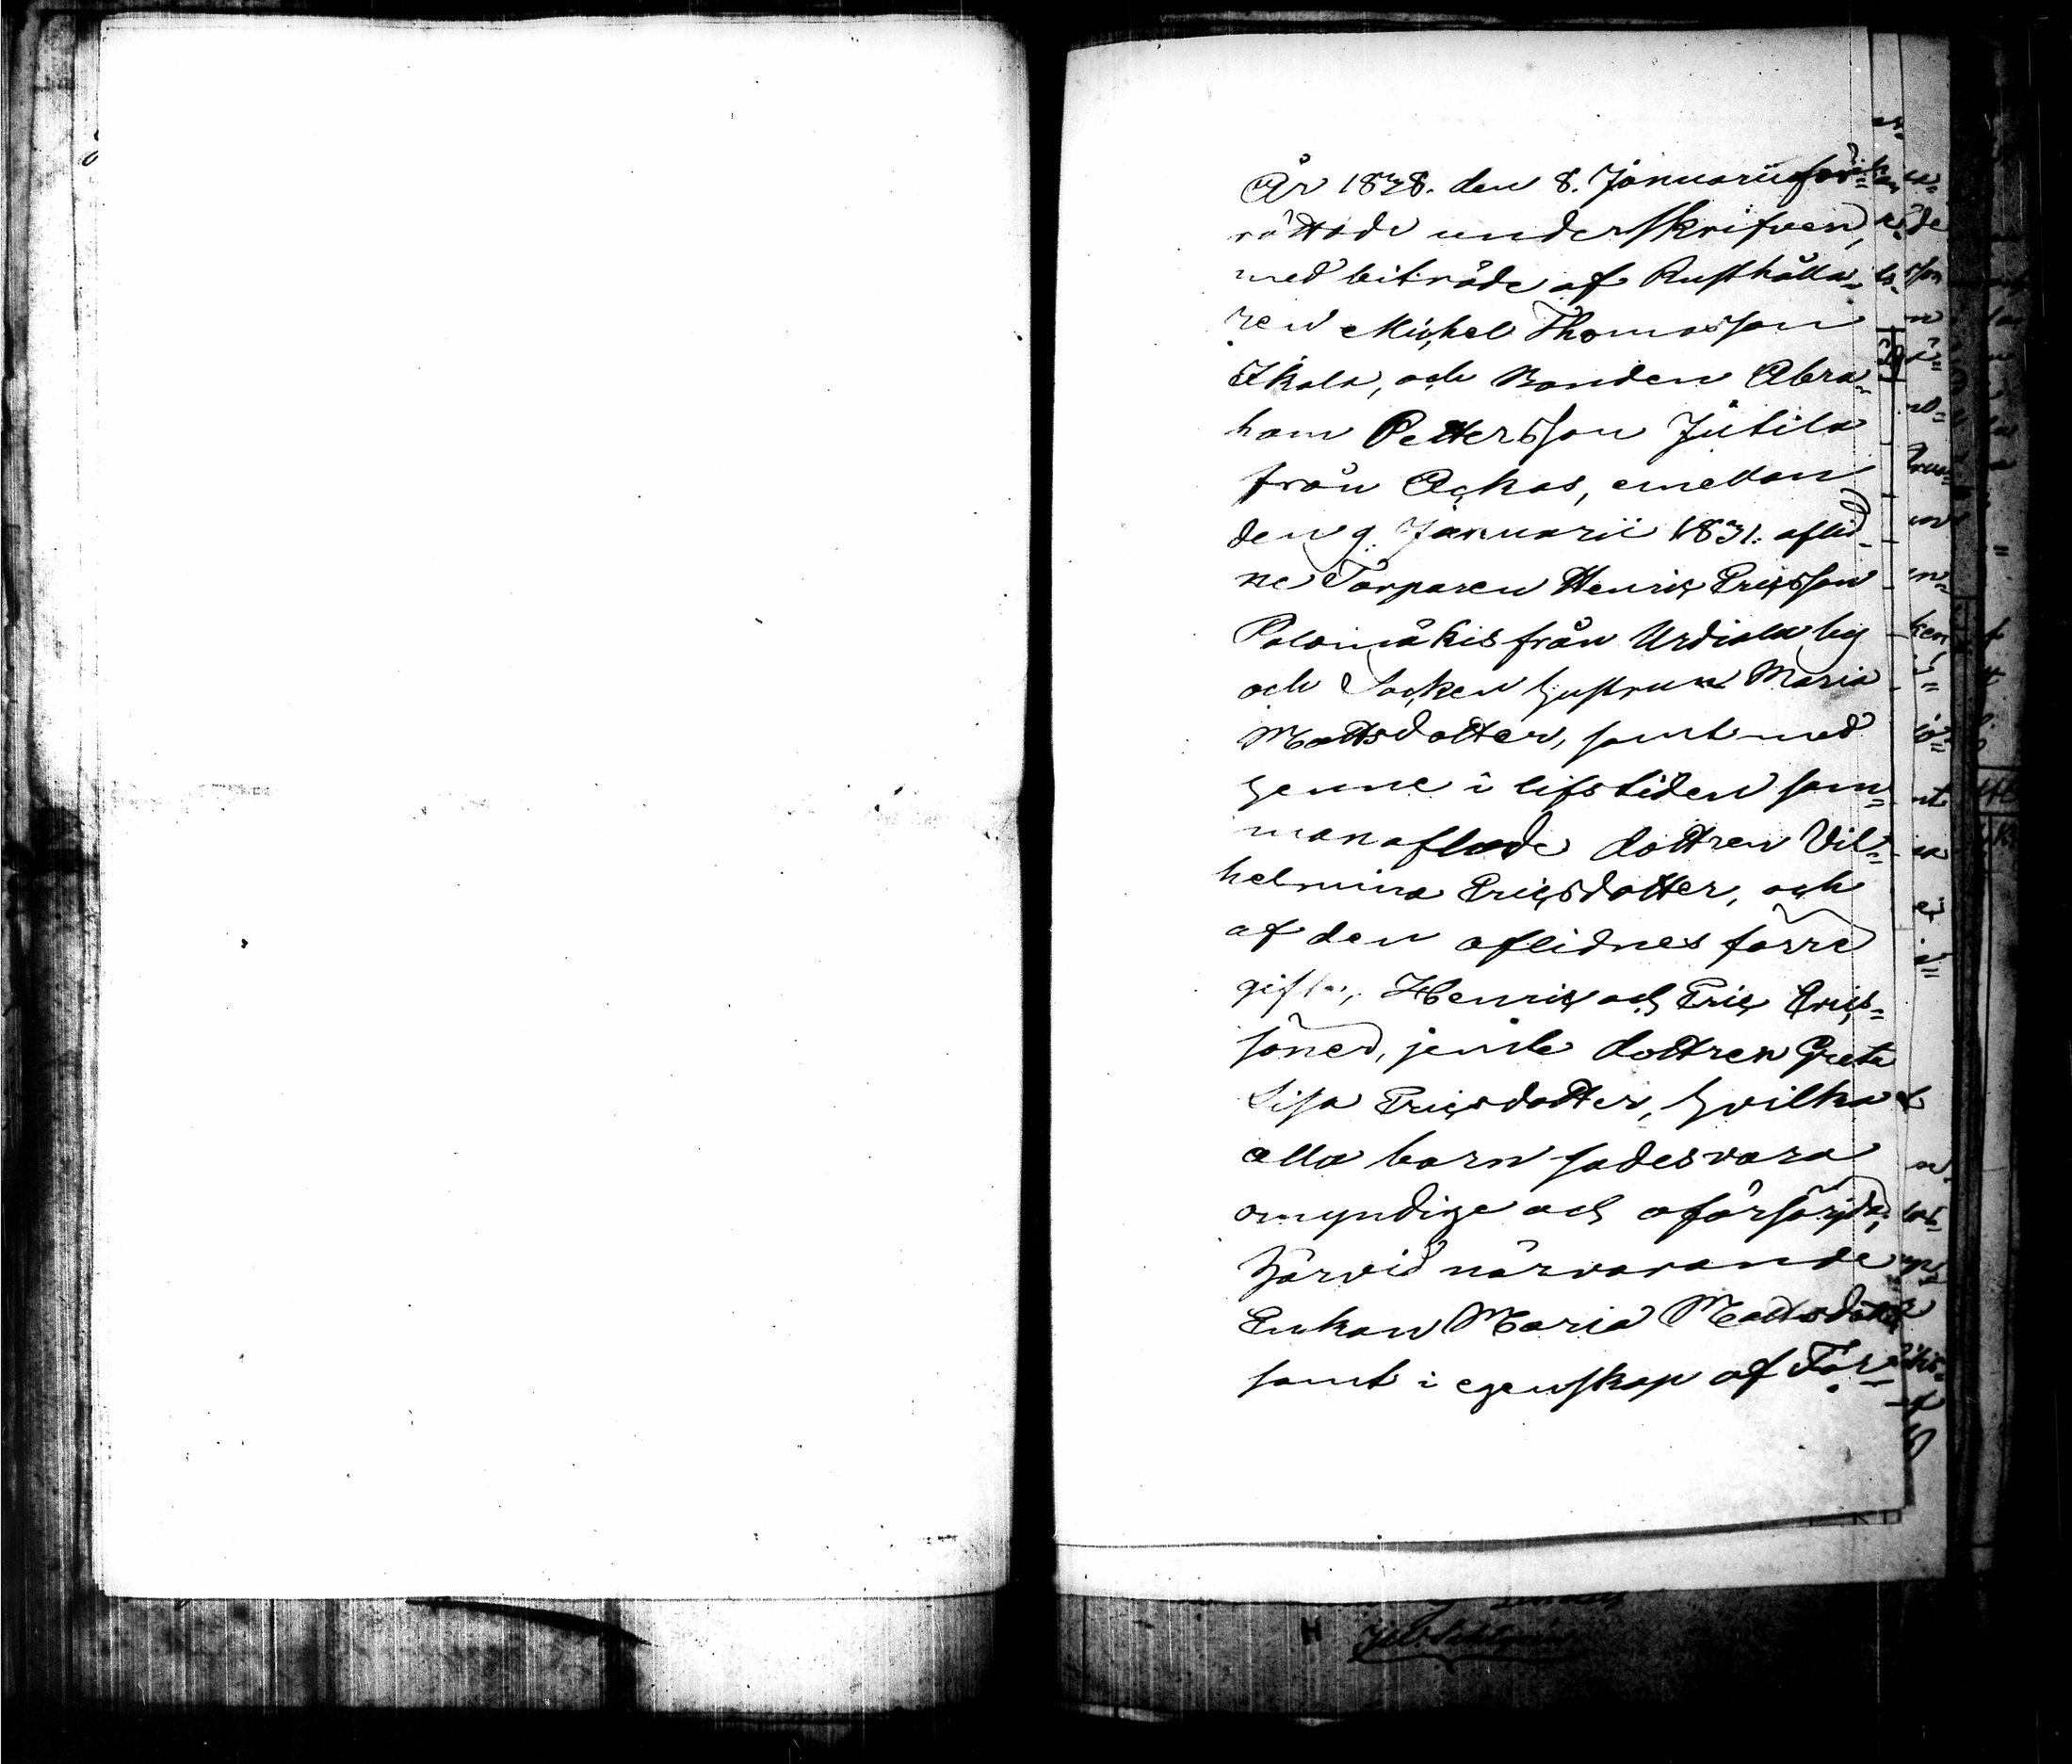 År 1838. den 8. Januarii för=
rättade underskrifven,
med biträde af Rusthålla=
ren Michel Thomasson
Skala, och Bonden Abra=
ham Pettersson Jutila
från Ackas, emellan
den 9. Januarii 1831. aflid=
ne Torparen Henric Ericsson
Palomäkis från Urdiala by
och Socken hustru Maria
Mattsdotter, samt med
henne i lifstiden sam=
manaflade dottren Vil=
helmina Ericsdotter, och
af den aflidnes förre
gifte, Henric och Eric Erics=
söner, jemte dottren Greta
Lisa Ericsdotter, hvilka
alla barn sades vara
omyndige och oförsörjda;
härvid närvarande
Enkan Maria Mattsdotter
samt i egenskap af För=